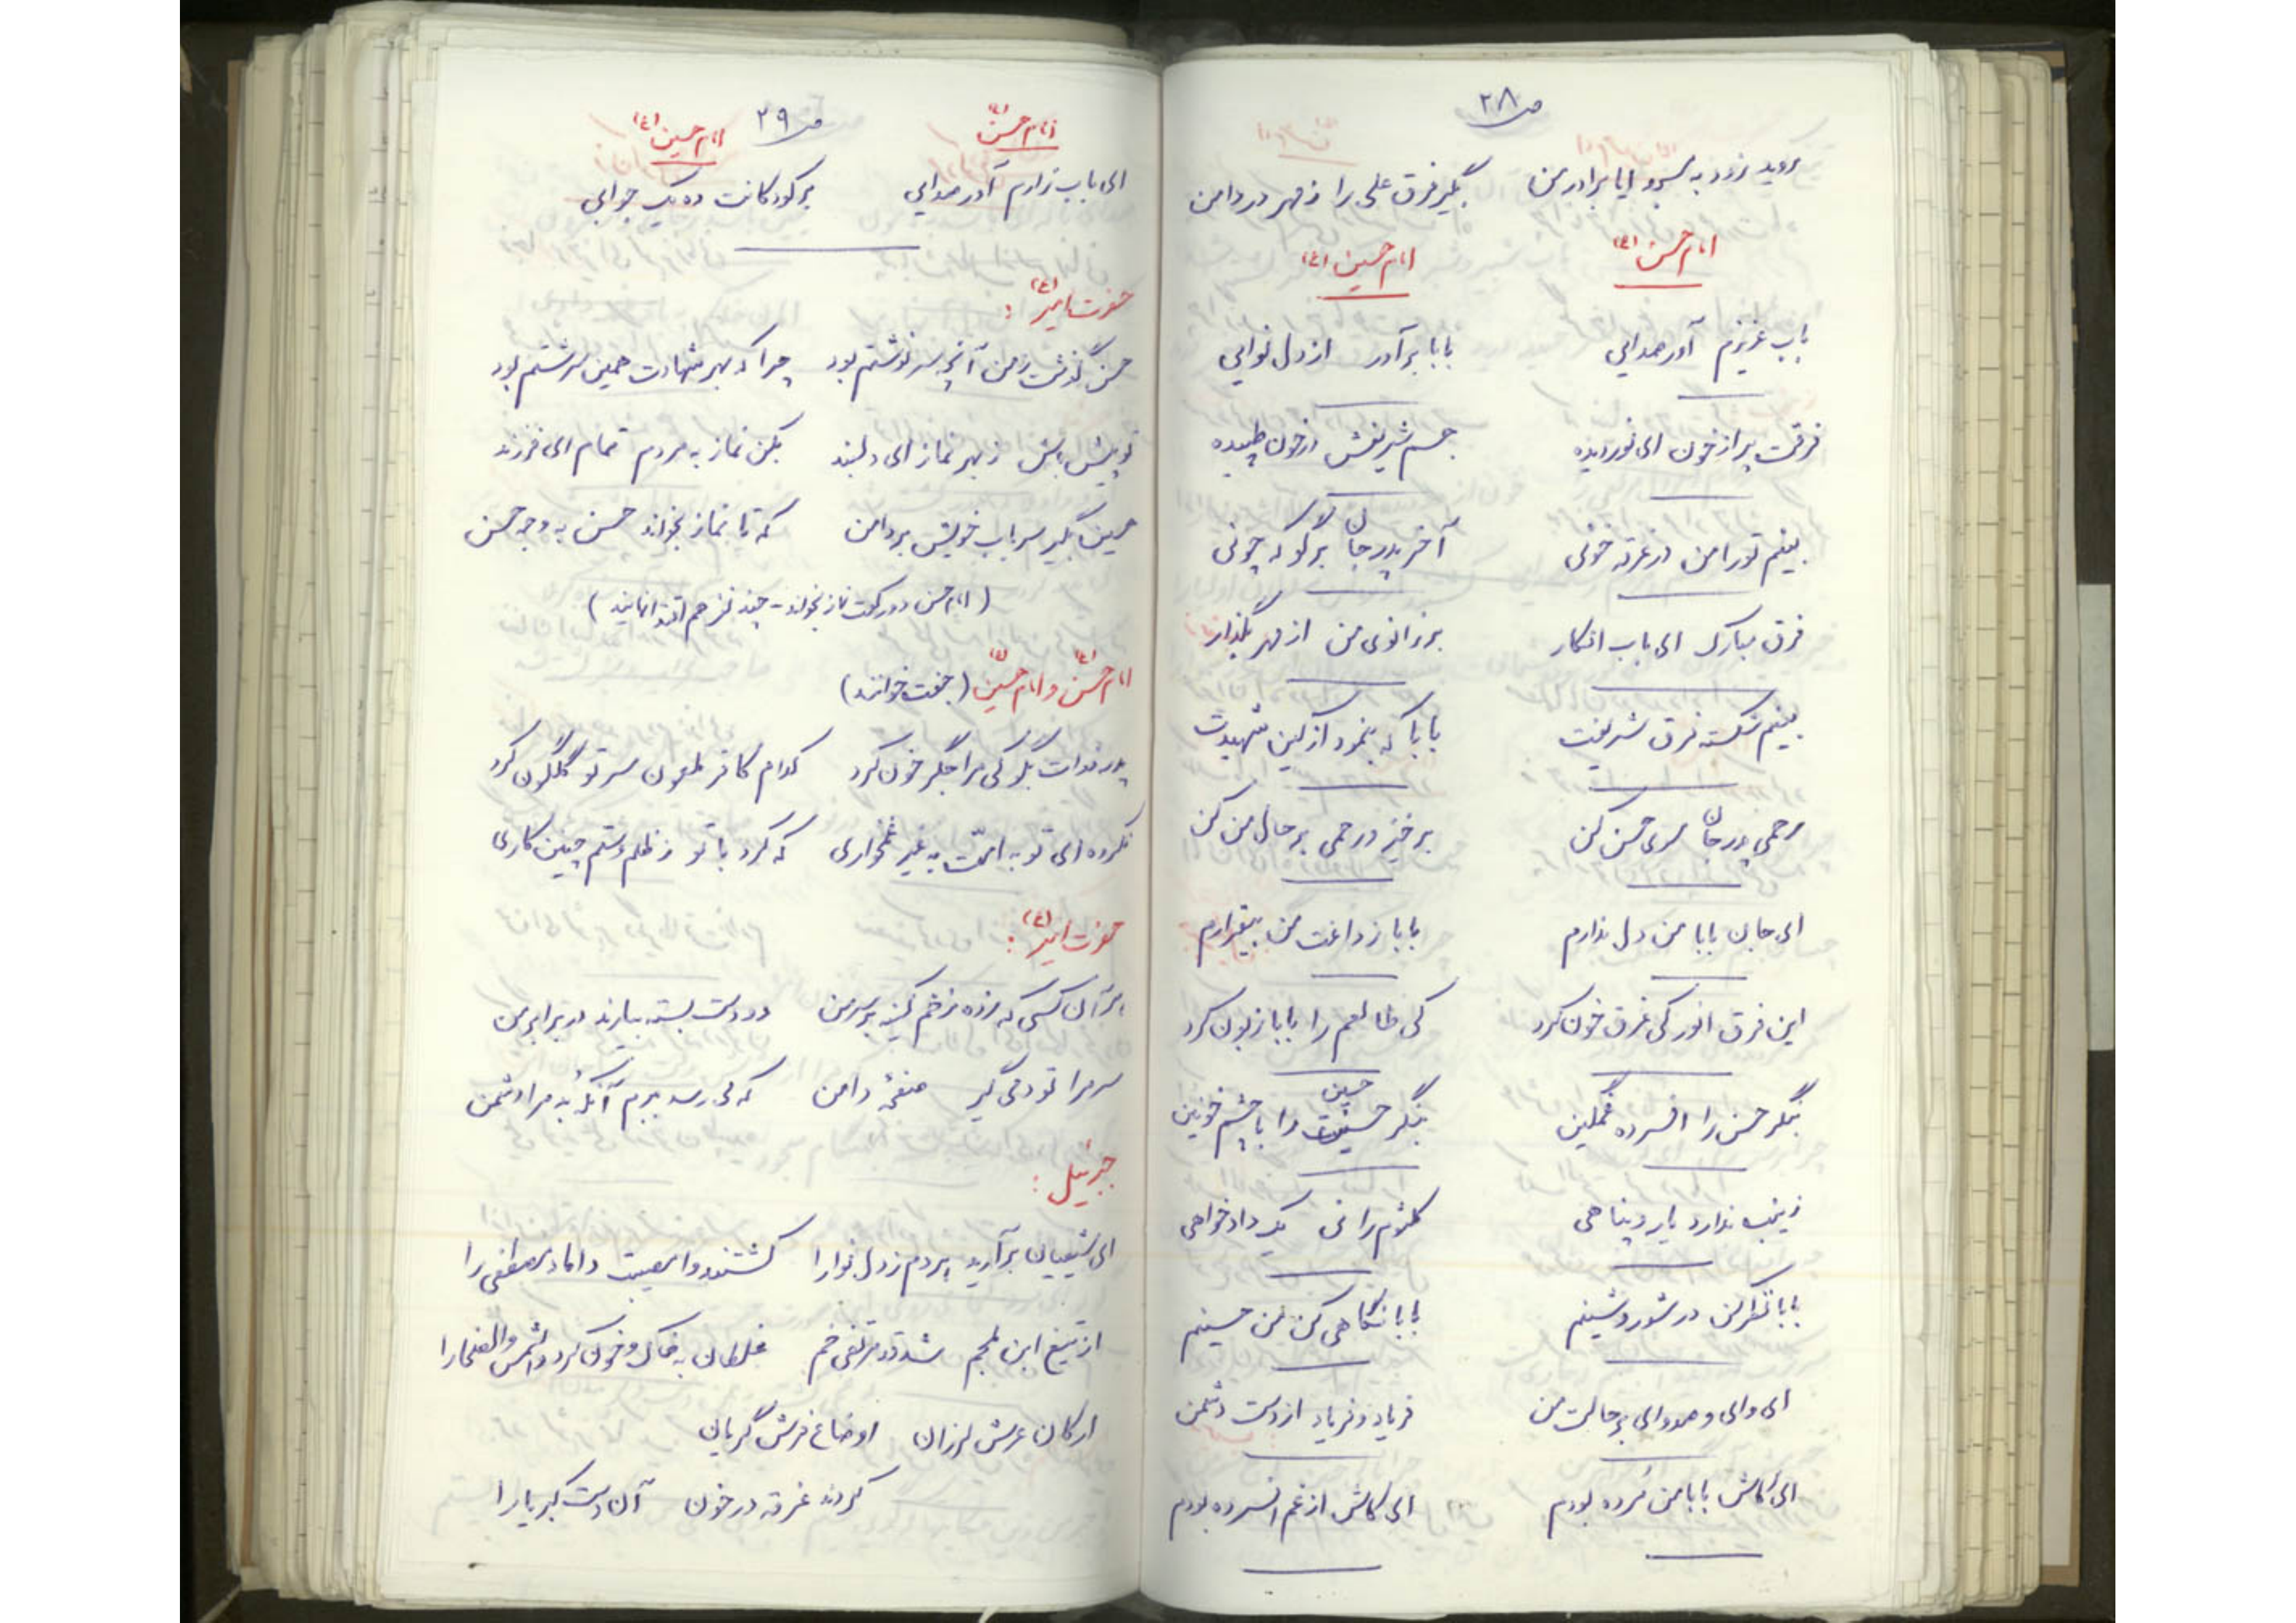 ص ۲۸
روید زود به سرو ایا برادر من بگیر فرق علی را ز مهر در دامن
امام حسن (ع) امام حسین (ع)
باب عزیزم آور صدایی بابا برآور از دل نوایی
فرقت پر از خون ای نور دیده جسم شریفش در خون طپیده
بینم تو را من در غرقه خونی آخر پدر جان برگو که چونی
فرق مبارک ای باب افکار بر زانوی من از مهر بگذار
بینم شکسته فرق شریفت بابا که بنمود از کین شهیدت
رحمی پدر جان سوی حسن کن برخیز و رحمی بر حال من کن
ای جان بابا من دل ندارم بابا ز داغت من بیقرارم
این فرق انور کی غرق خون کرد کی طالعم را بابا زبون کرد
بنگر حسن را افسرده غمگین بنگر حسین را با چشم خونین
زینب ندارد یار و پناهی کلثوم را نی یک دادخواهی
بابا نظر کن در شور و شینم بابا نگاهی کن من حسینم
ای وای و صد وای بر حالت من فریاد و فریاد از دست دشمن
ای کاش بابا من مرده بودم ای کاش از غم افسرده بودم
ص ۲۹
امام حسن (ع) امام حسین (ع)
ای باب زارم آور صدایی بر کودکانت ده یک جوابی
حضرت امیر (ع) :
حسن گذشت ز من آنچه سرنوشتم بود چرا که بهر شهادت همین سرشتم بود
تو پیش باش ز بهر نماز ای دلبند بکن نماز به مردم تمام ای فرزند
حسین بگیر سر باب خویش بر دامن که تا نماز بخواند حسن به وجه حسن
(امام حسن دو رکعت نماز بخواند - چند نفر هم اقتدا نمایند)
امام حسن (ع) و امام حسین (ع) (جفت خوانند)
پدر فدات بگو کی مرا جگر خون کرد کدام کافر ملعون سر تو گلگون کرد
نکرده ای تو به امّت به غیر غمخواری که کرد با تو ز ظلم و ستم چنین کاری
حضرت امیر (ع) :
هر آن کسی که زده زخم کینه بر سر من دو دست بسته بیارند در برابر من
سر مرا تو دمی گیر صفحهٔ دامن که می رسد برم آنکه به مرا دشمن
جبرئیل :
ای شیعیان برآرید هر دم ز دل نوا را کشتند وا مصیبت داماد مصطفی را
از تیغ ابن ملجم شد قد مرتضی خم غلطان به خاک و خون کرد والشمس والضحا را
ارکان عرش لرزان اوضاع فرش گریان
کردند غرقه در خون آن دست کبریا را